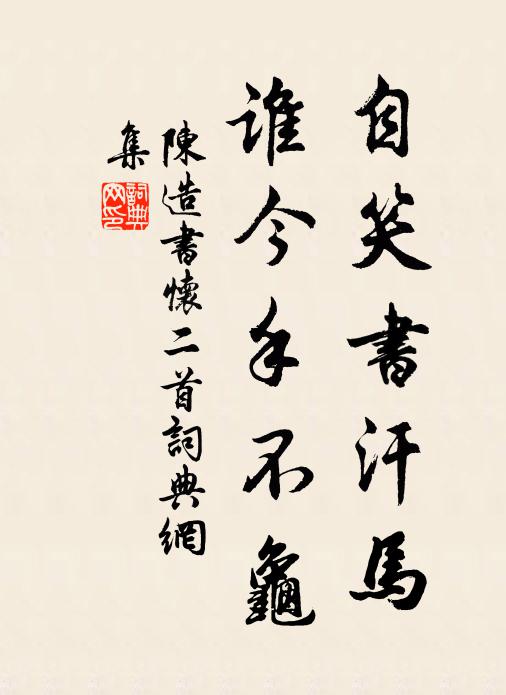 自笑書汗馬
誰今手不龜
陳造書懷二首詞典網
集
詞典
网印